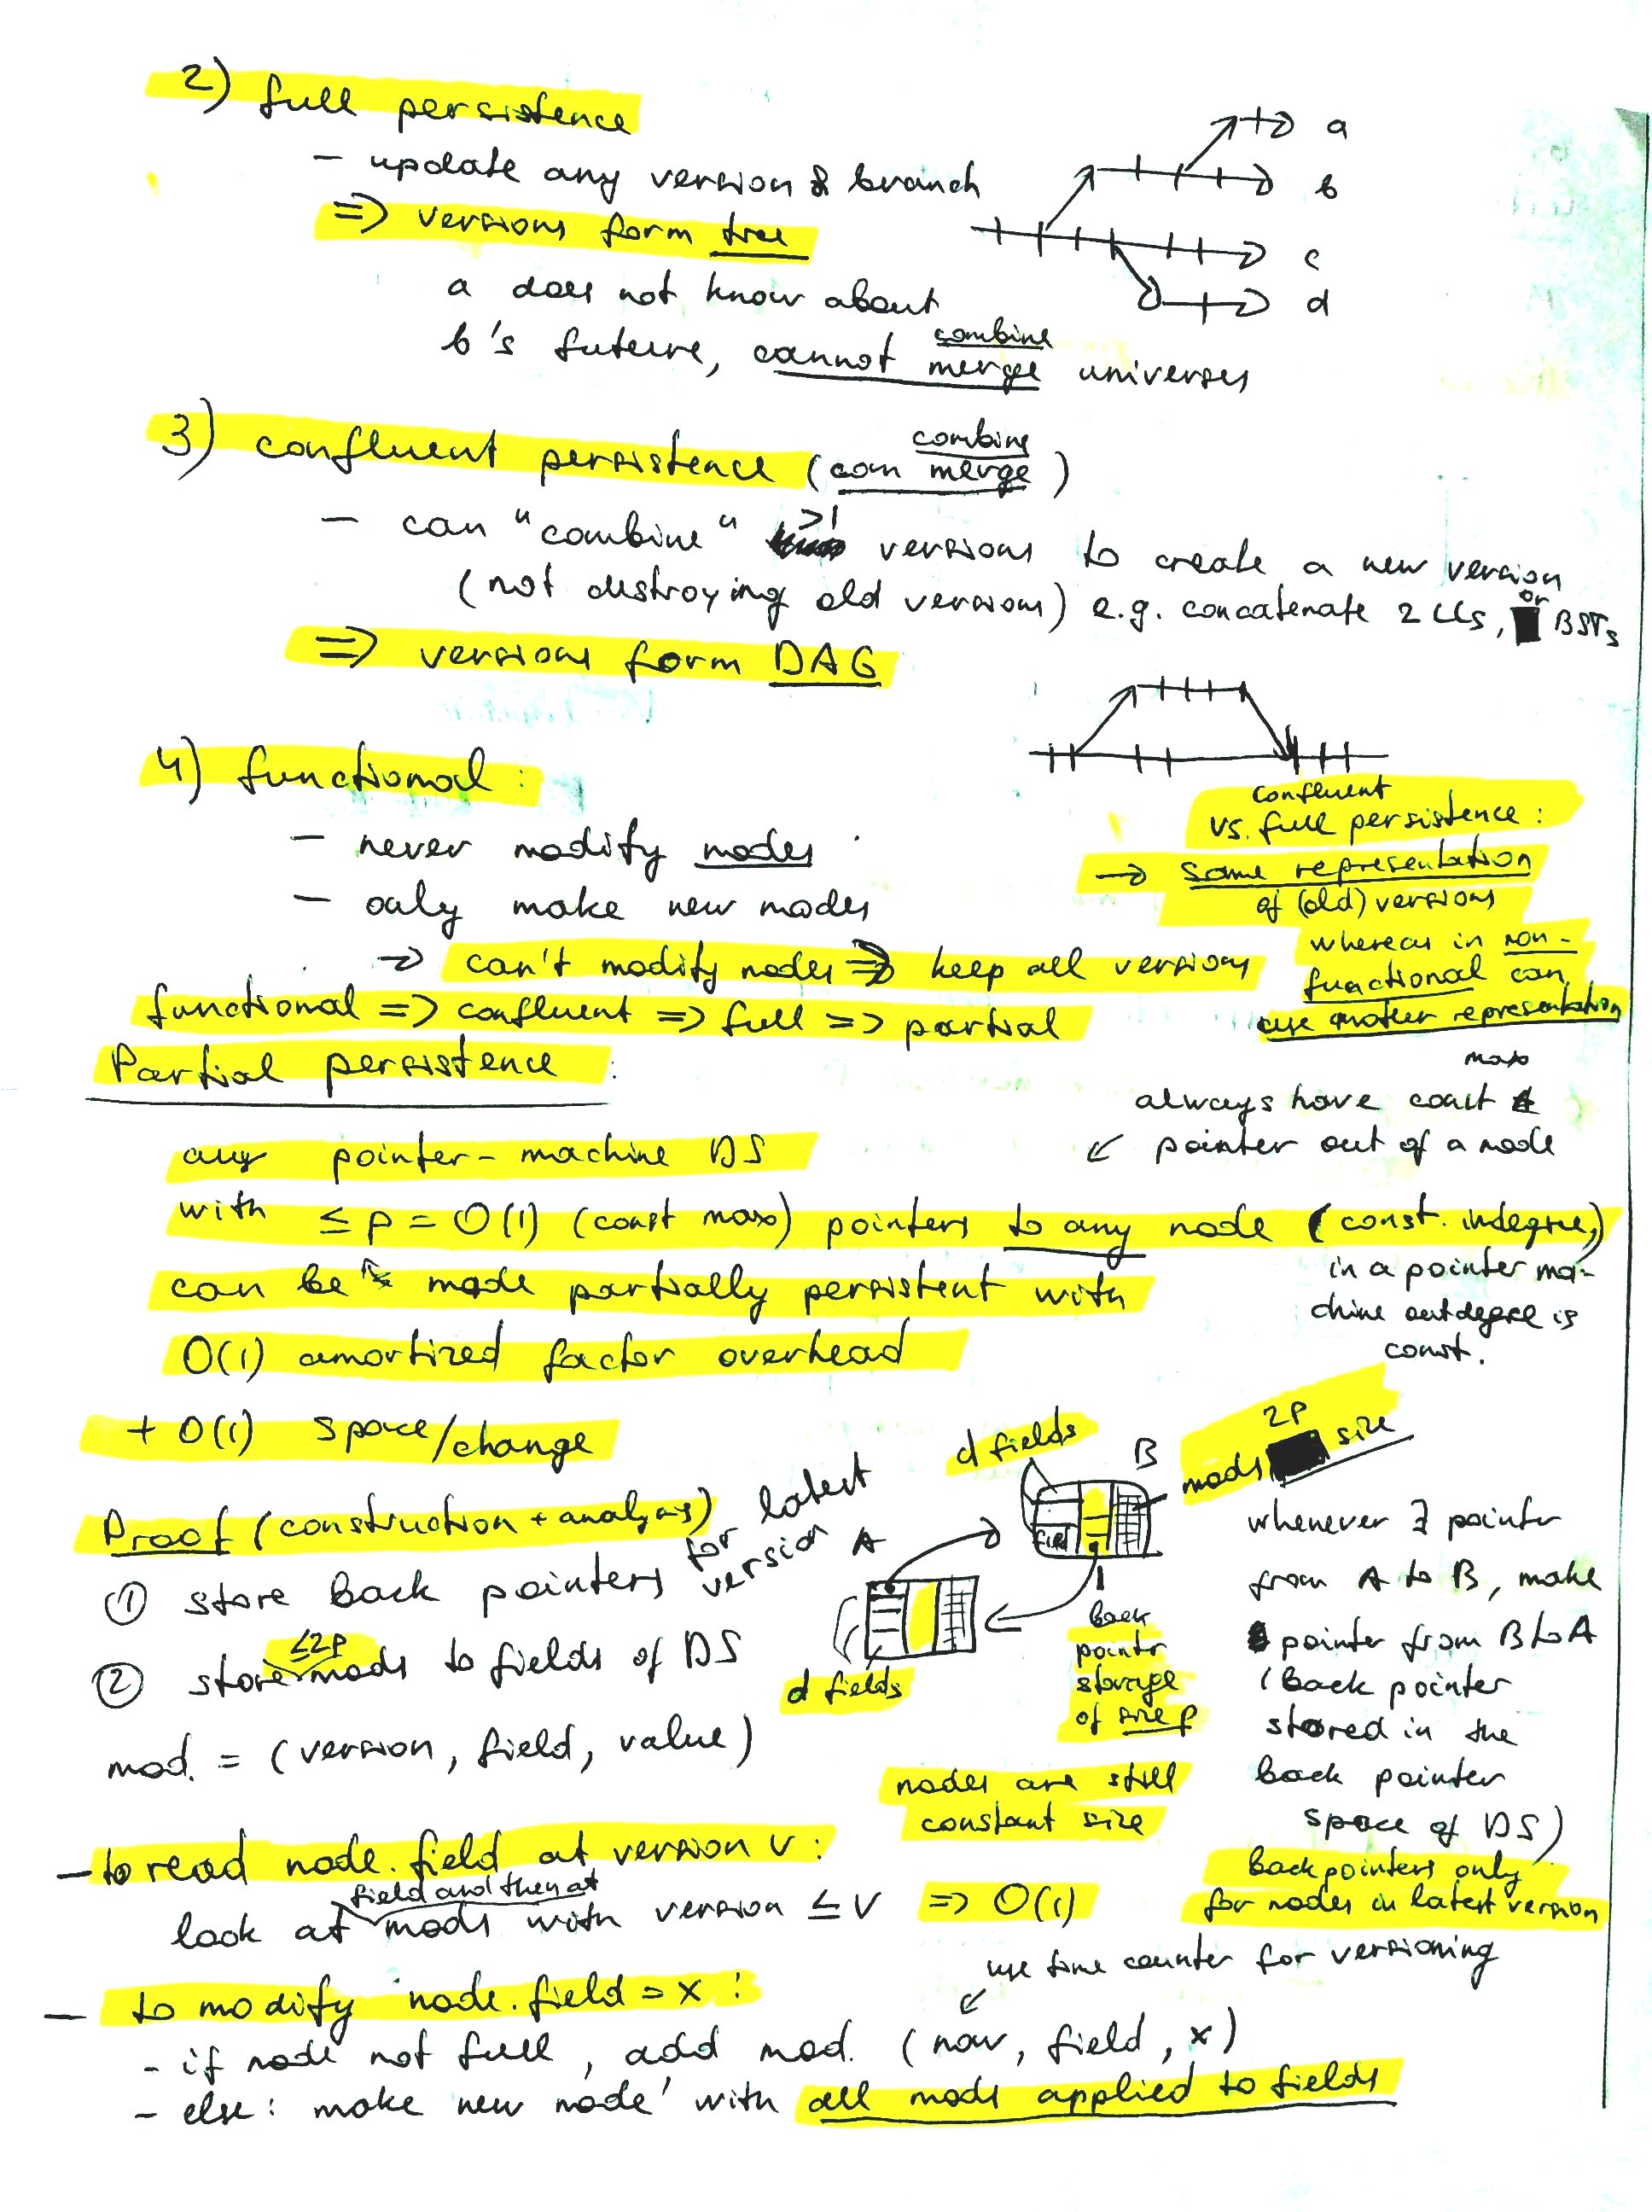 2) full persistence
- update any version & branch
=> versions form tree
a does not know about
b's future, cannot merge universes
combine
a
b
c
d
3) confluent persistence (can merge)
combine
- can "combine" >1 versions to create a new version
(not destroying old versions) e.g. concatenate 2 LLs, or BSTs
=> versions form DAG
4) functional:
- never modify nodes
- only make new nodes
→ can't modify nodes => keep all versions
functional => confluent => full => partial
confluent
vs. full persistence:
→ same representation
of (old) versions
whereas in non-
functional can
use another representation
Partial persistence:
max
always have const #
pointer out of a node
any pointer-machine DS
with ≤ p = O(1) (const max) pointers to any node (const. indegree)
can be made partially persistent with
O(1) amortized factor overhead
+ O(1) space/change
in a pointer ma-
chine outdegree is
const.
Proof (construction + analysis)
① store back pointers for latest version
② store ≤2p mods to fields of DS
mod. = (version, field, value)
d fields
B
2p
mods size
field
A
d fields
back
pointer
storage
of size p
nodes are still
constant size
whenever ∃ pointer
from A to B, make
pointer from B to A
(Back pointer
stored in the
back pointer
space of DS)
Back pointers only
for nodes in latest version
- to read node.field at version v:
look at field and then at mods with version ≤ v => O(1)
use time counter for versioning
- to modify node.field = x:
- if node not full, add mod. (now, field, x)
- else: make new node' with all mods applied to fields